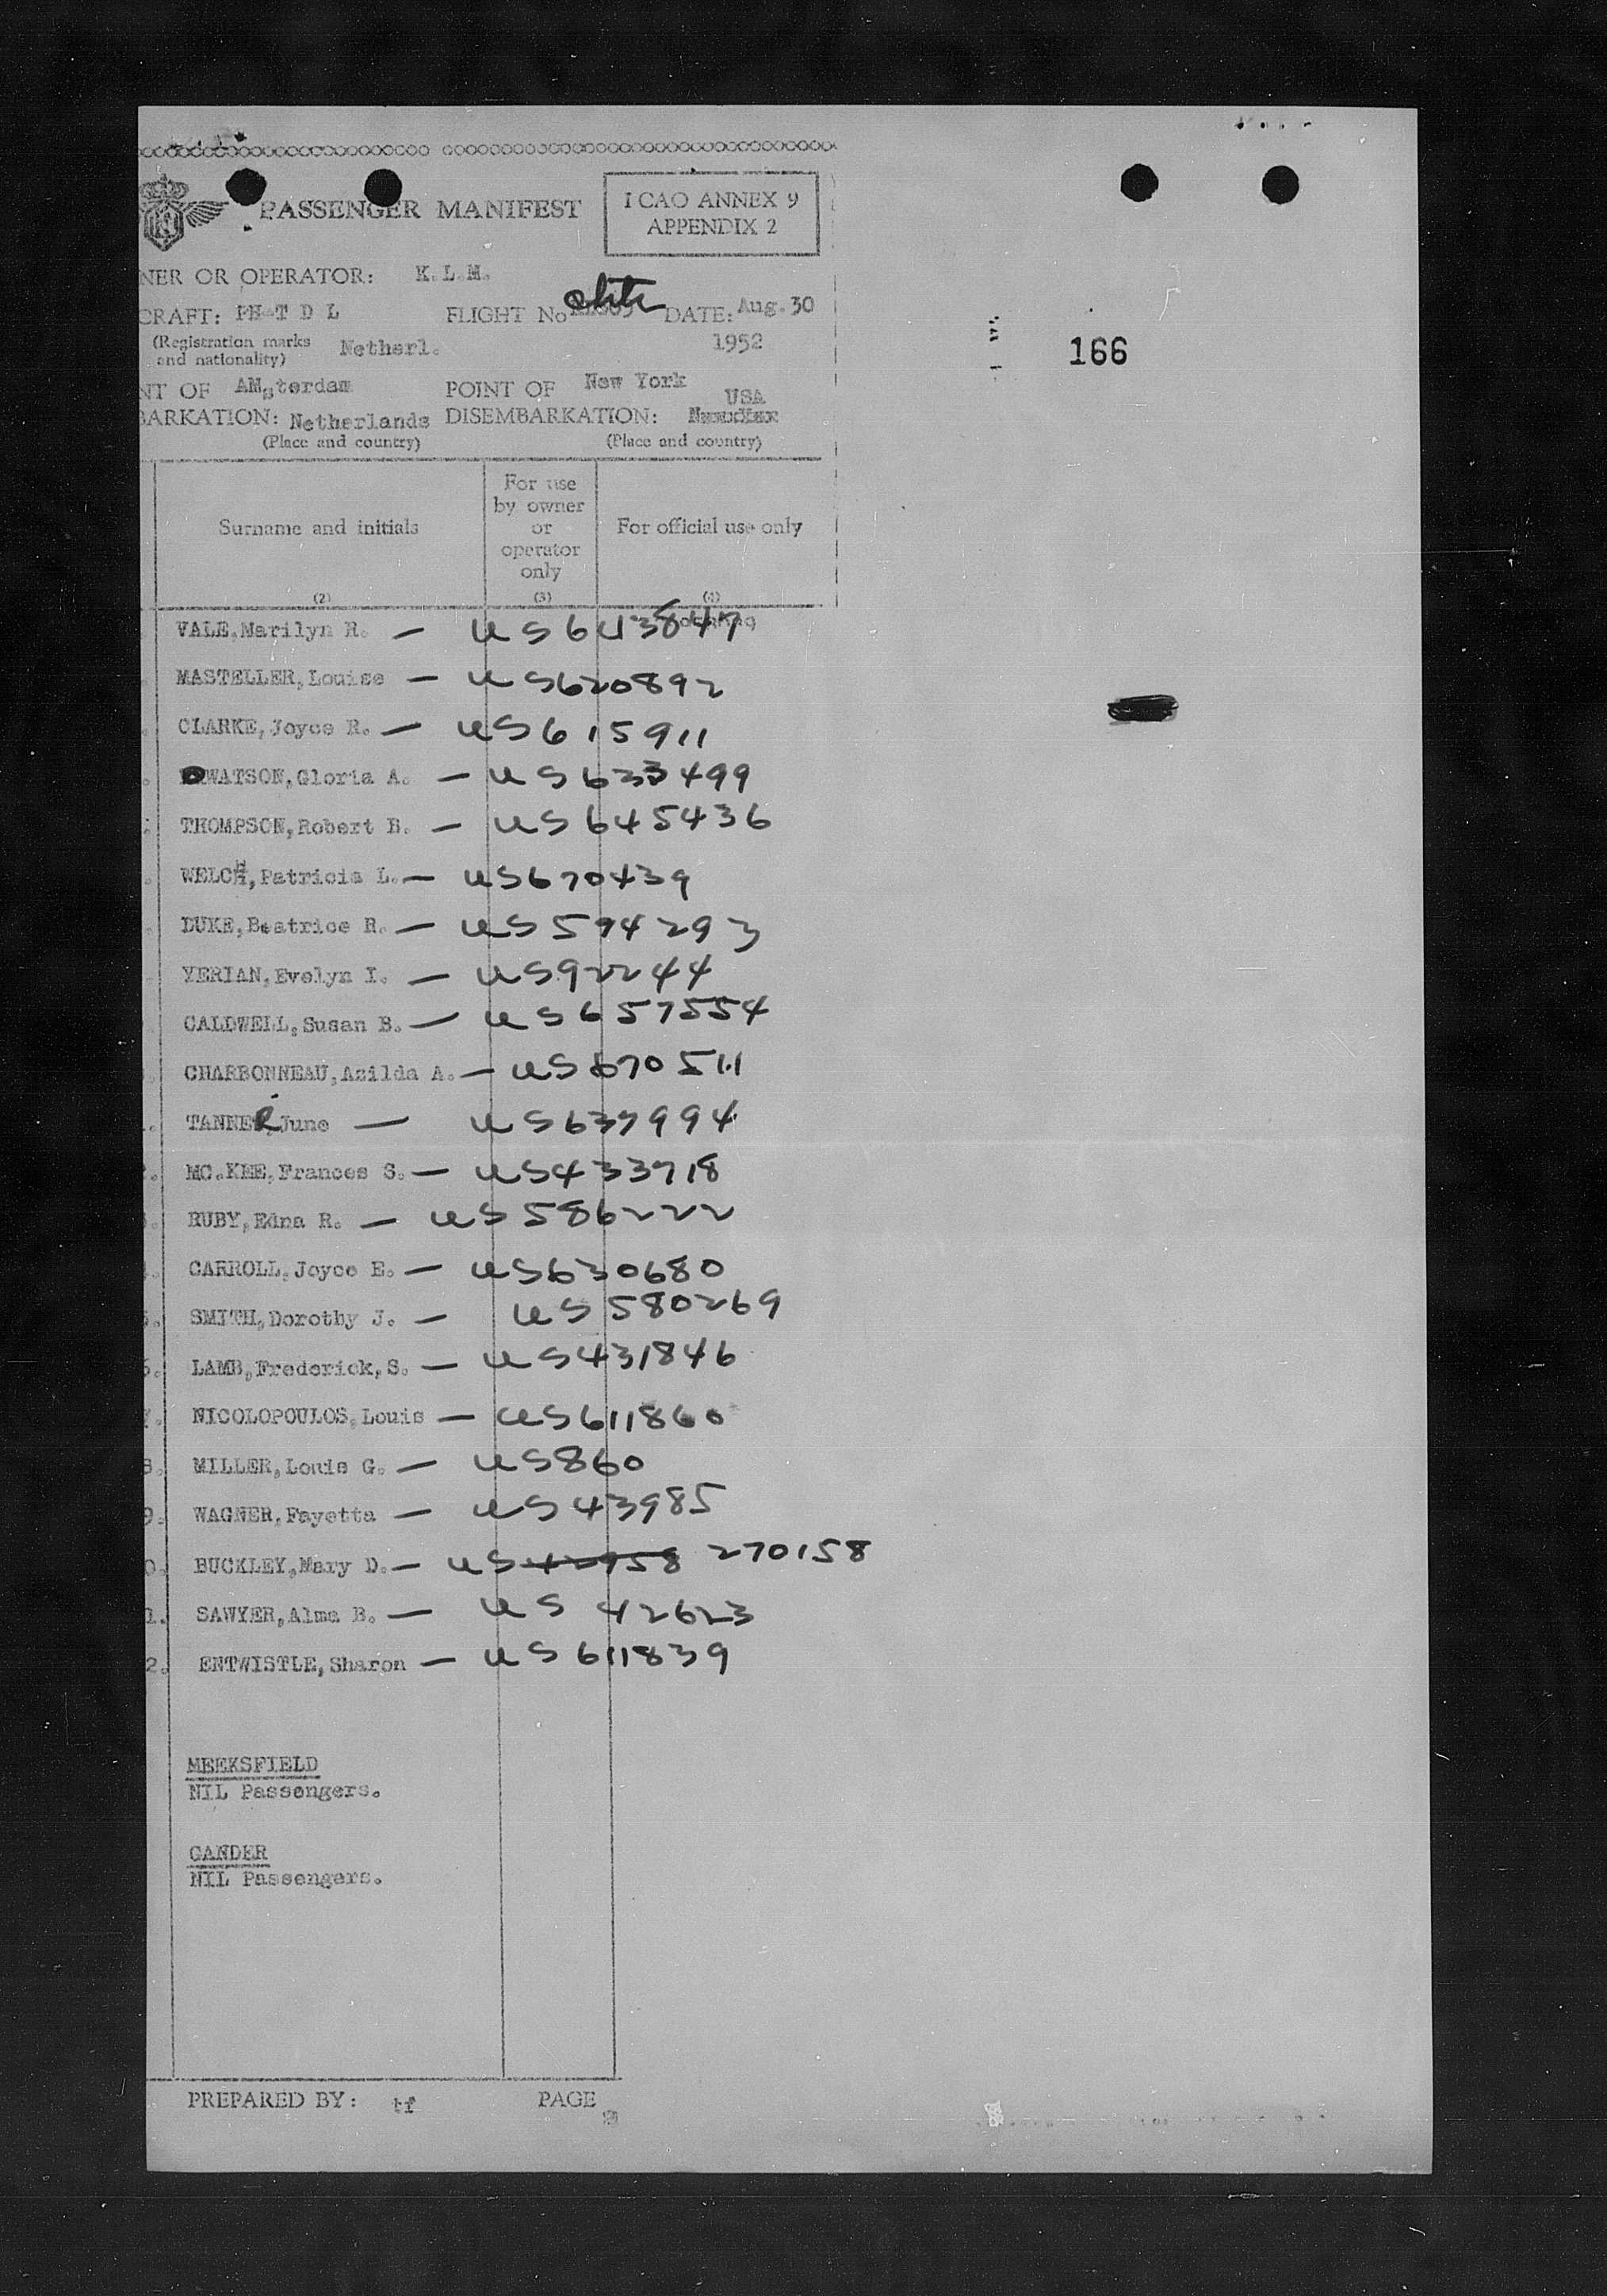 PASSENGER MANIFEST
I CAO ANNEX 9
APPENDIX 2
NER OR OPERATOR: K.L.M.
CRAFT: PH-T D L FLIGHT No DATE: Aug. 30
(Registration marks and nationality) Netherl. 1952
166
NT OF AMsterdam POINT OF New York
USA
BARKATION: Netherlands DISEMBARKATION:
(Place and country) (Place and country)
Surname and initials
For use
by owner
or
operator
only
For official use only
(2) (3) (4)
VALE, Marilyn R. — US 643847
MASTELLER, Louise — US620892
CLARKE, Joyce R. — US615911
WATSON, Gloria A. — US 633499
THOMPSON, Robert B. — US 645436
WELCH, Patricia L. — US670439
DUKE, Beatrice R. — US 594293
YERIAN, Evelyn I. — US92244
CALDWELL, Susan B. — US 657554
CHARBONNEAU, Azilda A. — US 670511
TANNER, June — US637994
MC.KEE, Frances S. — US433718
RUBY, Edna R. — US 586222
CARROLL, Joyce E. — US630680
SMITH, Dorothy J. — US 580269
LAMB, Frederick, S. — US431846
7. NICOLOPOULOS, Louis — US611860
8. MILLER, Louis G. — US860
9. WAGNER, Fayetta — US 43985
0. BUCKLEY, Mary D. — US 270158
1. SAWYER, Alma B. — US 42623
2. ENTWISTLE, Sharon — US 611839
MEEKSFIELD
NIL Passengers.
GANDER
NIL Passengers.
PREPARED BY: tf PAGE